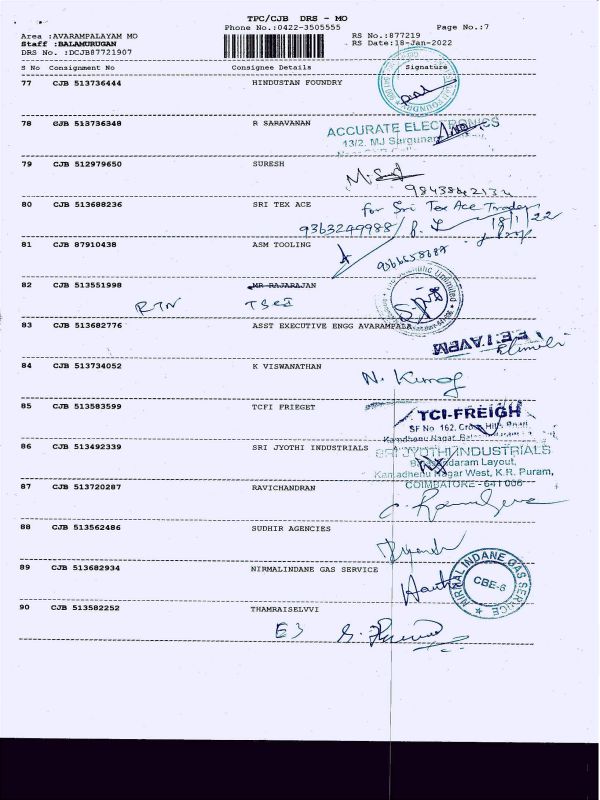 TPC/CJB DRS - MO
Phone No.:0422-3505555 Page No.:7
Area :AVARAMPALAYAM MO RS No.:877219
Staff :BALAMURUGAN RS Date:18-Jan-2022
DRS No. :DCJB87721907
S No Consignment No Consignee Details Signature
77 CJB 513736444 HINDUSTAN FOUNDRY
78 CJB 513736348 R SARAVANAN
ACCURATE ELECTRONICS
13/2, MJ Sarguna
79 CJB 512979650 SURESH
80 CJB 513688236 SRI TEX ACE for Sri Tex Ace Trader
9363249988 18/1/22
81 CJB 87910438 ASM TOOLING
82 CJB 513551998 MR RAJARAJAN
RTN
83 CJB 513682776 ASST EXECUTIVE ENGG AVARAMPALA
84 CJB 513734052 K VISWANATHAN
N. Kumar
85 CJB 513583599 TCFI FRIEGET
TCI-FREIGH
SF No 162, Cross
Kamdhenu Nagar
86 CJB 513492339 SRI JYOTHI INDUSTRIALS
SRI JYOTHI INDUSTRIALS
Layout,
Kamadhenu Nagar West, K.R. Puram,
COIMBATORE - 641 006
87 CJB 513720287 RAVICHANDRAN
88 CJB 513562486 SUDHIR AGENCIES
89 CJB 513682934 NIRMALINDANE GAS SERVICE
NIRMAL INDANE GAS SERVICE
CBE-6
90 CJB 513582252 THAMRAISELVVI
E3